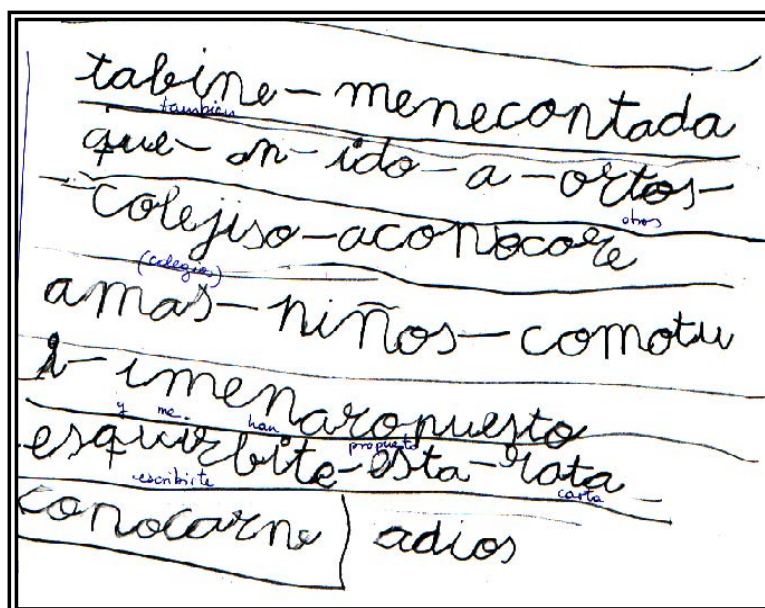 tabine - menecontada
tambien
que - on - ido - a - ortos -
otros
colejiso - aconocore
(colegios)
amas - niños - comotu
i - imenaropuesto
y me han propuesto
esquirbite - esta - rata
escribirte carta
conocarne adios